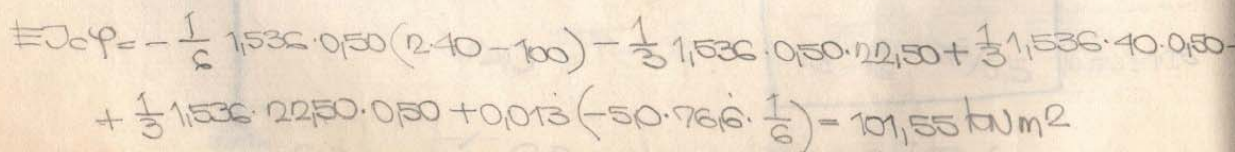 EJcφ = - 1/6 1,536·0,50(2·40-100) - 1/3 1,536·0,50·22,50 + 1/3 1,536·40·0,50-
+ 1/3 1,536·22,50·0,50 + 0,013(-50·76,6·1/6) = 101,55 kNm²